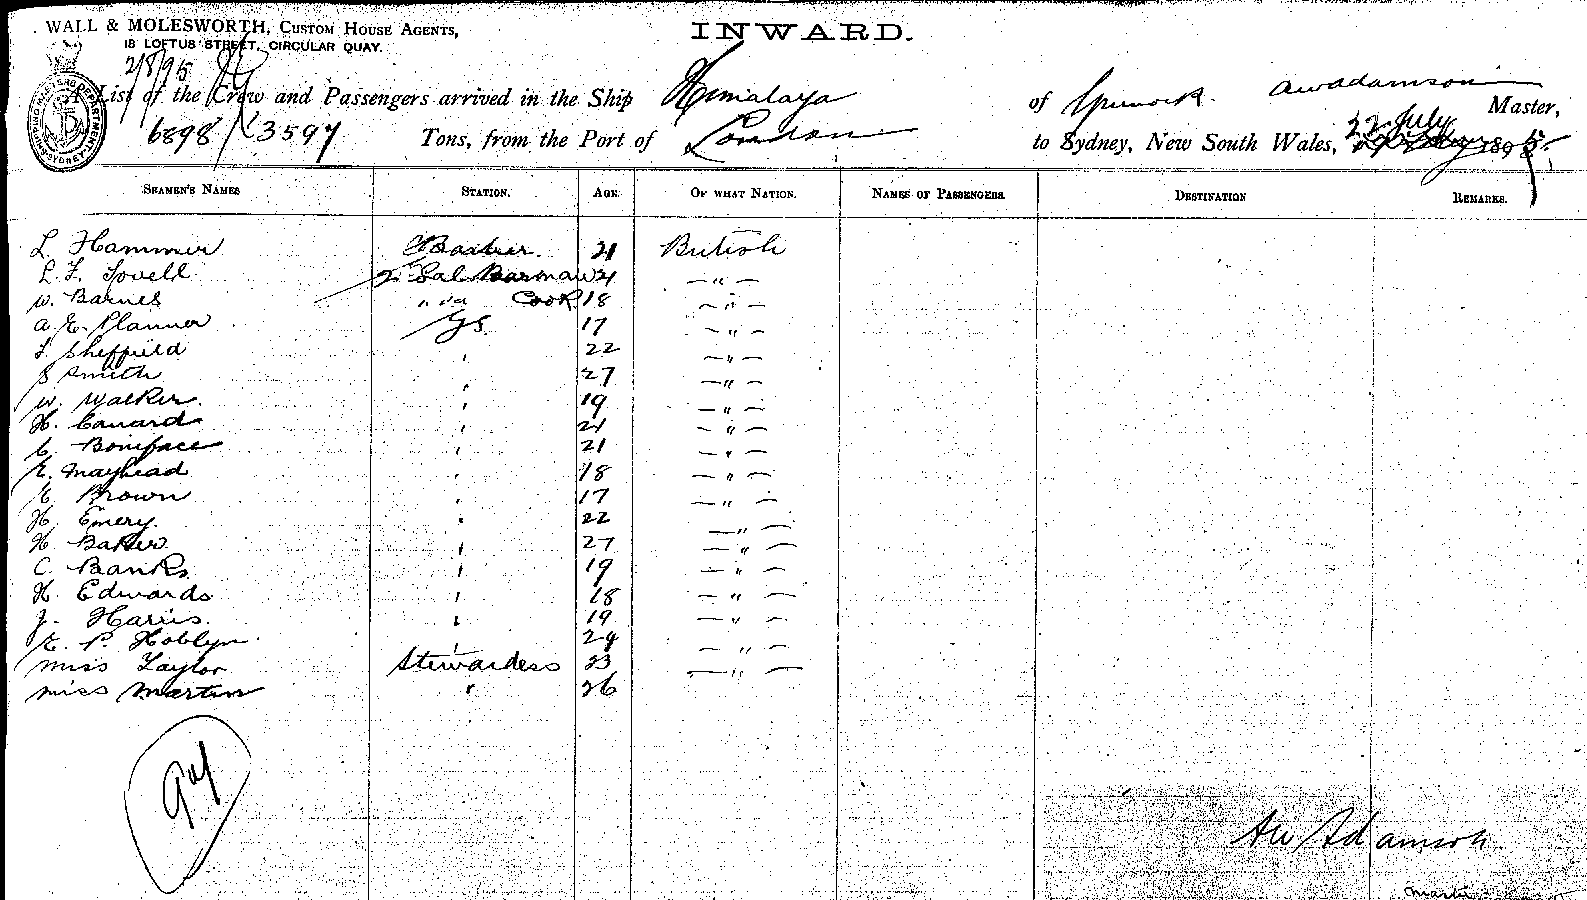 WALL & MOLESWORTH, CUSTOM HOUSE AGENTS,
18 LOFTUS STREET, CIRCULAR QUAY.
INWARD.
2/8/95
A List of the Crew and Passengers arrived in the Ship Himalaya of Greenock. A W Adamson Master,
6898/3597 Tons, from the Port of London to Sydney, New South Wales, 22 July 1895
SEAMEN'S NAMES STATION. AGE. OF WHAT NATION. NAMES OF PASSENGERS. DESTINATION REMARKS.
L. Hammer Barber. 21 British
L. F. Lovell 2 Sal Barman 21 — " —
W. Barnes " Cook 18 — " —
A. E. Planner G.S. 17 — " —
F. Sheffield " 22 — " —
S Smith " 27 — " —
W. Walker. " 19 — " —
H. " 21 — " —
C. Boniface " 21 — " —
E. Mayhead " 18 — " —
E. Brown " 17 — " —
H. Emery. " 22 — " —
H. Baker " 27 — " —
C. Banks. " 19 — " —
H. Edwards " 18 — " —
J. Harris. " 19 — " —
E. P. Hoblyn. " 24 — " —
Miss Taylor Stewardess 33 — " —
Miss Martin " 26
A W Adamson